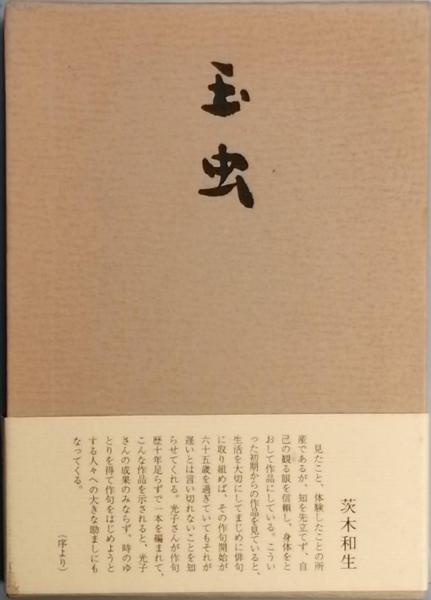 玉虫
茨木和生
見たこと、体験したことの所
産であるが、知を先立てず、自
己の観る眼を信頼し、身体をと
おして作品にしている。こうい
った初期からの作品を見ていると、
生活を大切にしてまじめに俳句
に取り組めば、その作句開始が
六十五歳を過ぎていてもそれが
遅いとは言い切れないことを知
らせてくれる。光子さんが作句
歴十年足らずで一本を編まれて、
こんな作品を示されると、光子
さんの成果のみならず、時のゆ
とりを得て作句をはじめようと
する人々への大きな励ましにも
なってくる。
（序より）